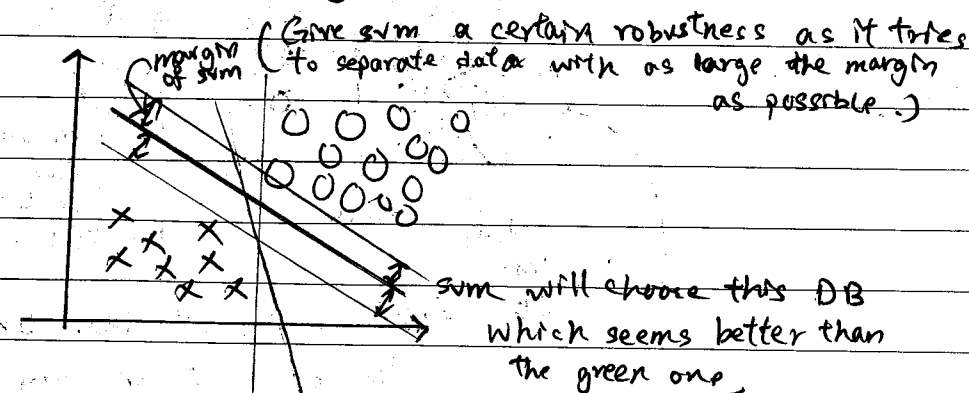 margin
of svm
(Give svm a certain robustness as it tries
to separate data with as large the margin
as possible.)
svm will choose this DB
which seems better than
the green one.